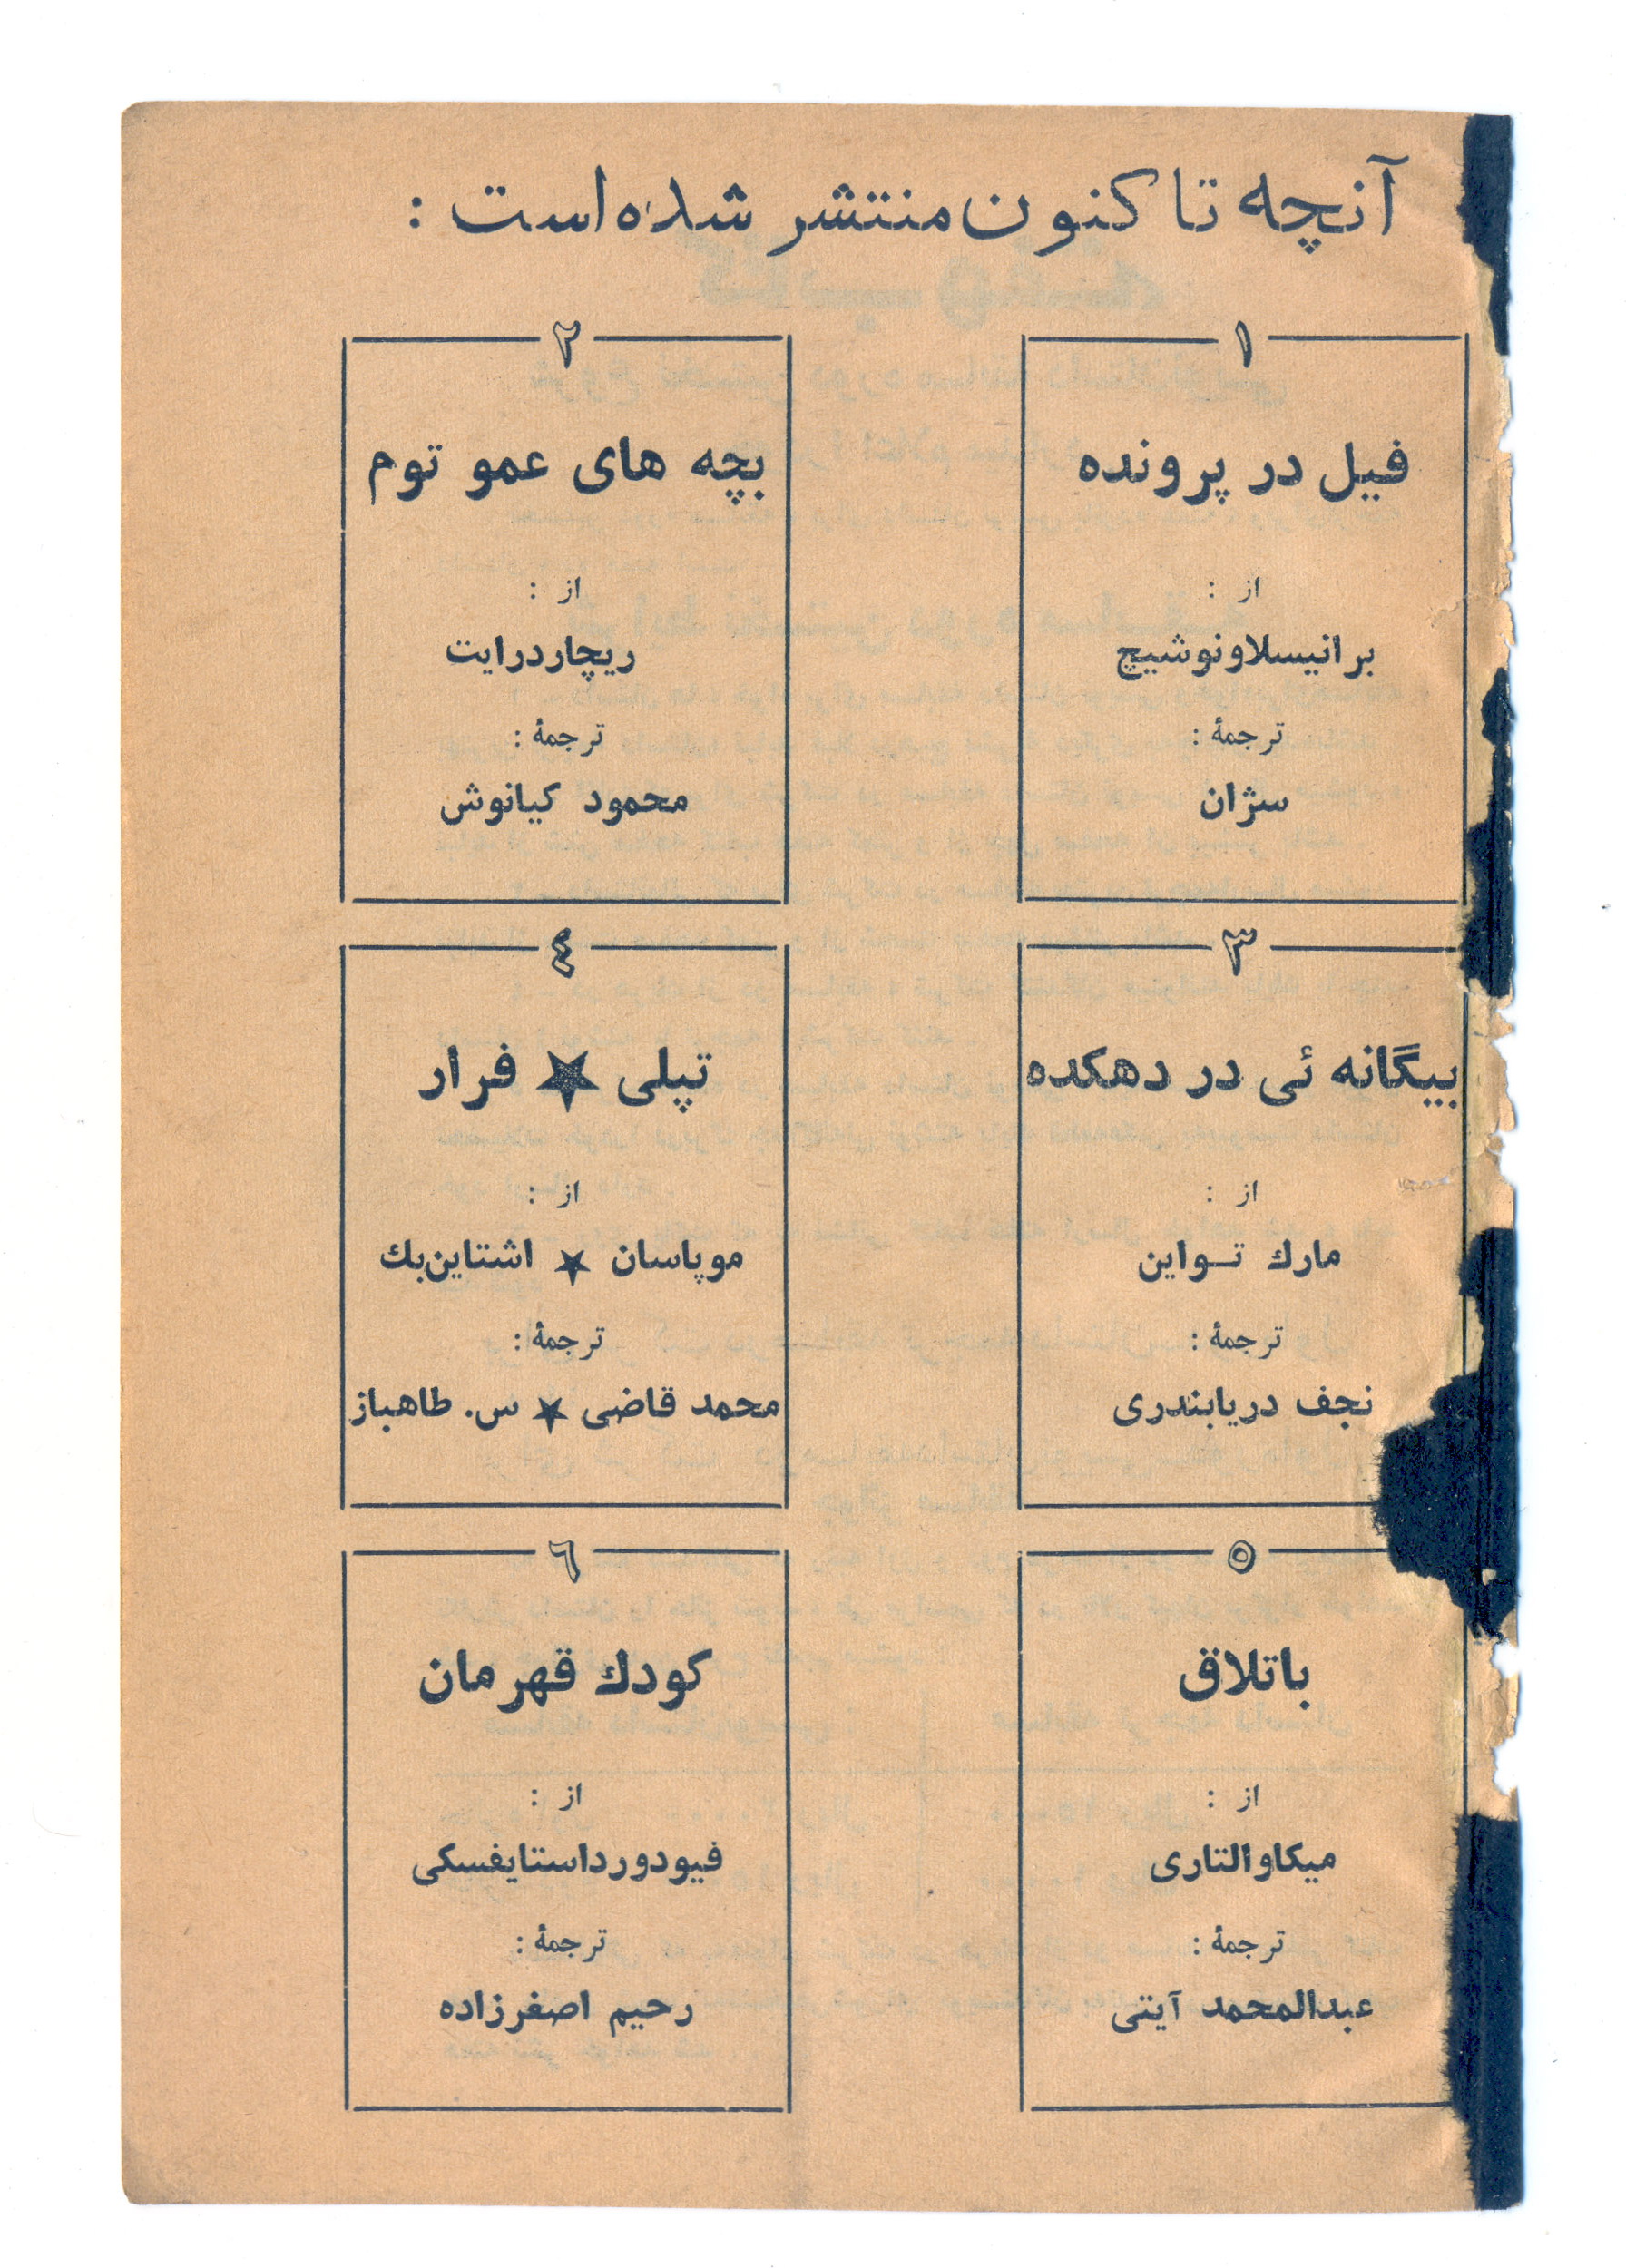 آنچه تا کنون منتشر شده است :
۱
فیل در پرونده
از :
برانیسلاو نوشیچ
ترجمهٔ :
سژان
۲
بچه های عمو توم
از :
ریچارد رایت
ترجمهٔ :
محمود کیانوش
۳
بیگانه ئی در دهکده
از :
مارك تـواین
ترجمهٔ :
نجف دریابندری
٤
تپلی ★ فرار
از :
موپاسان ★ اشتاین‌بك
ترجمهٔ :
محمد قاضی ★ س. طاهباز
٥
باتلاق
از :
میکا والتاری
ترجمهٔ :
عبدالمحمد آیتی
٦
کودك قهرمان
از :
فیودور داستایفسکی
ترجمهٔ :
رحیم اصغرزاده